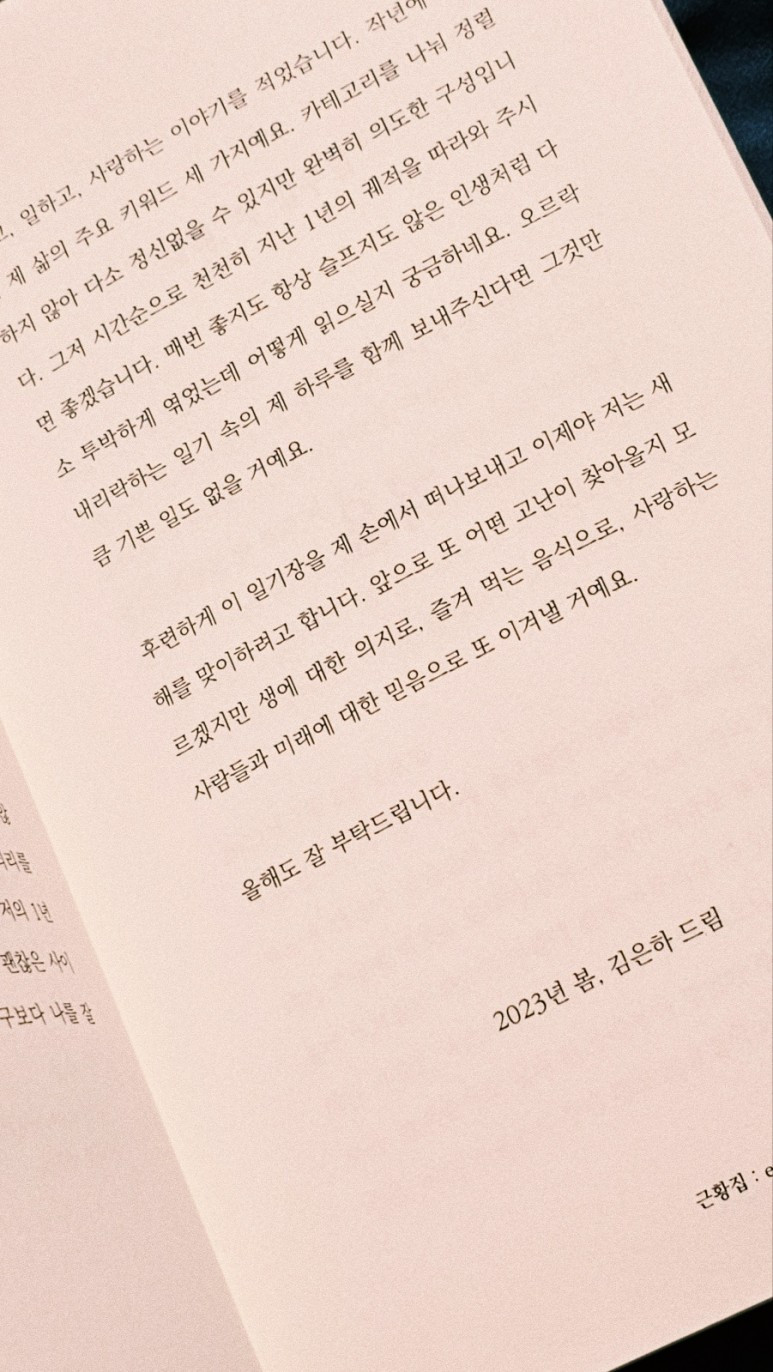 일하고, 사랑하는 이야기를 적었습니다. 작년에
제 삶의 주요 키워드 세 가지예요. 카테고리를 나눠 정렬
하지 않아 다소 정신없을 수 있지만 완벽히 의도한 구성입니
다. 그저 시간순으로 천천히 지난 1년의 궤적을 따라와 주시
면 좋겠습니다. 매번 좋지도 항상 슬프지도 않은 인생처럼 다
소 투박하게 엮었는데 어떻게 읽으실지 궁금하네요. 오르락
내리락하는 일기 속의 제 하루를 함께 보내주신다면 그것만
큼 기쁜 일도 없을 거예요.
후련하게 이 일기장을 제 손에서 떠나보내고 이제야 저는 새
해를 맞이하려고 합니다. 앞으로 또 어떤 고난이 찾아올지 모
르겠지만 생에 대한 의지로, 즐겨 먹는 음식으로, 사랑하는
사람들과 미래에 대한 믿음으로 또 이겨낼 거예요.
올해도 잘 부탁드립니다.
2023년 봄, 김은하 드림
근황집 :
저의 1년
괜찮은 사이
구보다 나를 잘